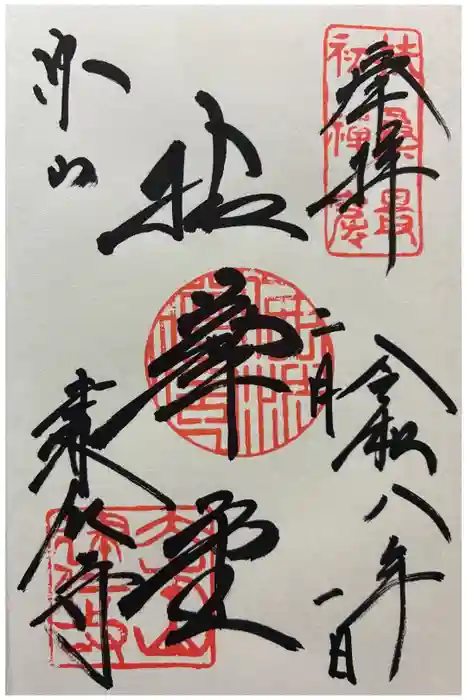 扶桑最
初禪窟
奉拝
令和八年
二月
一日
拈華堂
東山
建仁寺